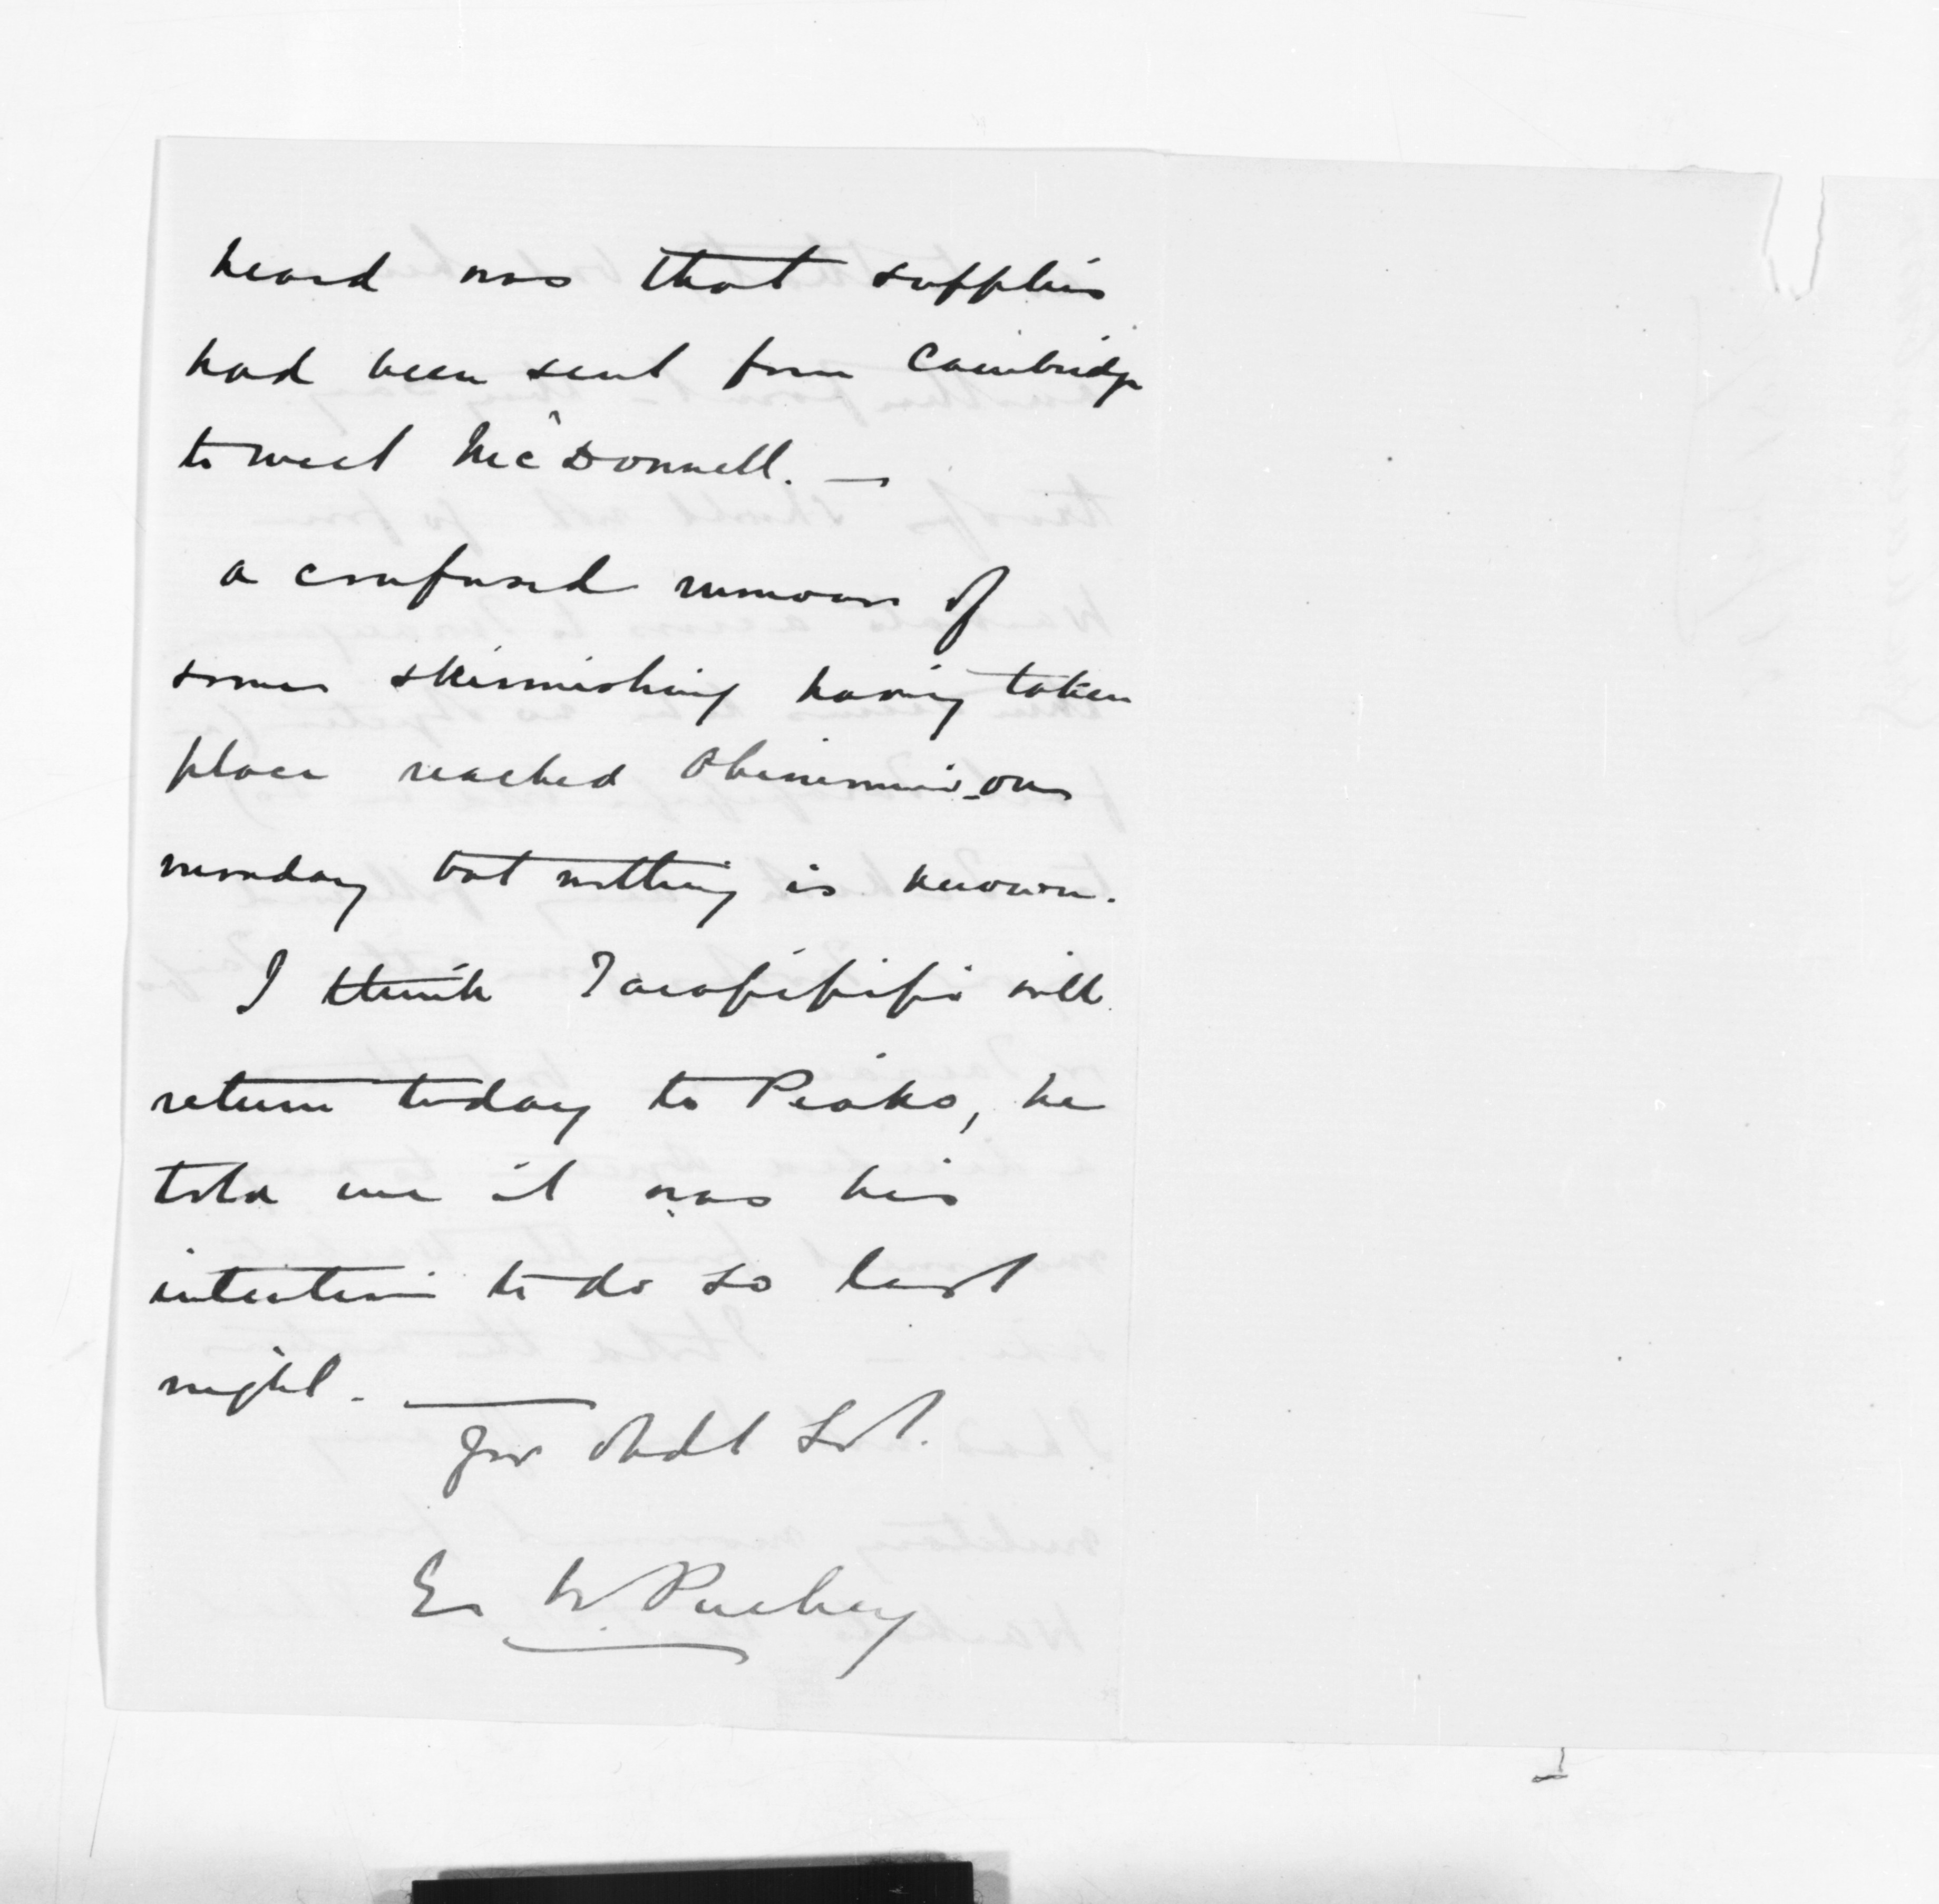 heard was that supplies
had been sent from Cambridge
to meet McDonnell. —
a confused rumour of
some skirmishing having taken
place reached Ohinemuri on
monday but nothing is known.
I think Taraipipipi will
return today to Piako, he
told me it was his
intention to do so last
night. —
Yor Obdt Svt.
E. W. Puckey